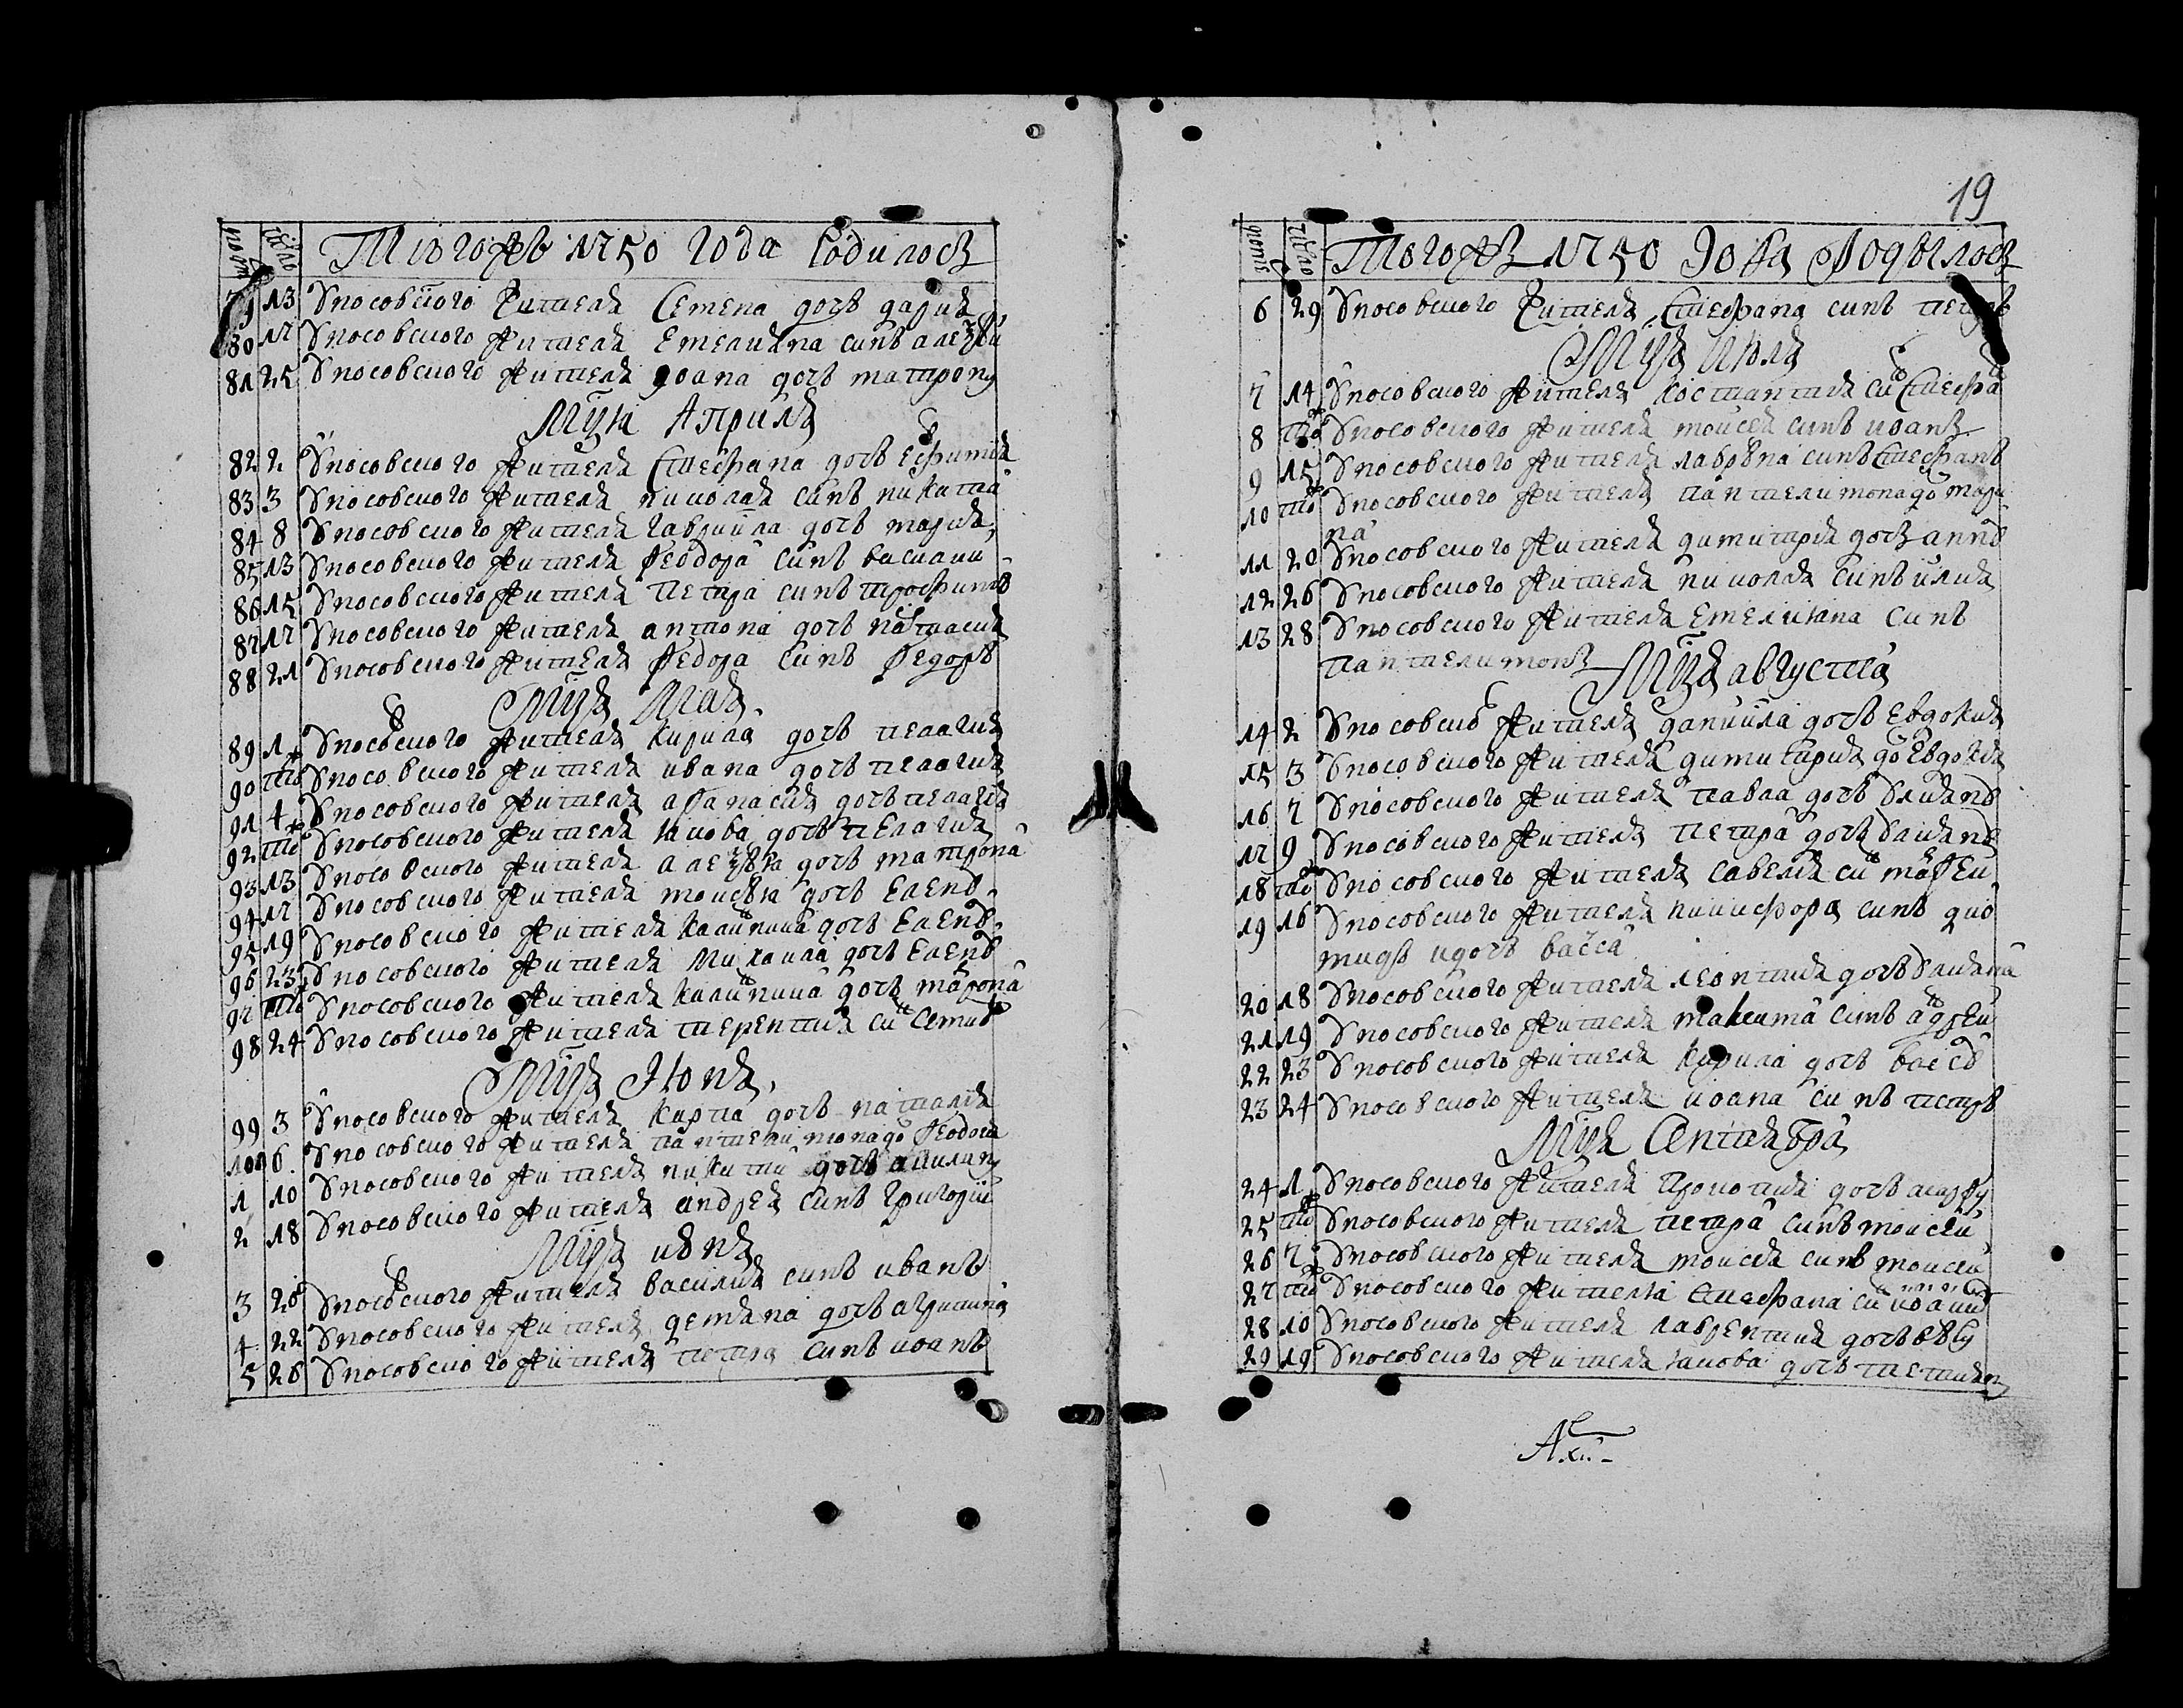 19
Тогожъ 1750 года родилося
79 13 Уносовского жителя Семена дочъ дария
80 17 Уносовского жителя Емелияна синъ алеѯѣй
81 25 Уносовского жителя иоана дочъ матрону
Мця Априля
82 2 Уносовского жителя Стефана дочъ ефимия
83 3 Уносовского жителя николая синъ никита
84 8 Уносовского жителя гавриила дочъ мария
85 13 Уносовского жителя Ѳеодора синъ василий
86 15 Уносовского жителя Петра синъ трофимъ
87 17 Уносовского жителя антона дочъ настасия
88 21 Уносовского жителя Ѳедора синъ Ѳедоръ
Мця Мая
89 1 Уносовского жителя кирила дочъ пелагия
90 тож Уносовского жителя ивана дочъ пелагия
91 4 Уносовского жителя аѳанасия дочъ пелагия
92 тож Уносовского жителя якова дочъ пелагия
93 13 Уносовского жителя алеѯѣя дочъ матрона
94 17 Уносовского жителя моисѣя дочъ Елену
95 19 Уносовского жителя калиника дочъ Елену
96 23 Уносовского жителя Михаила дочъ Елену
97 тож Уносовского жителя калиника дочъ матрона
98 24 Уносовского жителя терентия синъ Семи
Мця Июня
99 3 Уносовского жителя карпа дочъ наталия
100 6 Уносовского жителя пантелимона до Ѳеодосия
1 10 Уносовского жителя никити дочъ акилину
2 18 Уносовского жителя андрея синъ григорий
Мця июня
3 20 Уносовского жителя василия синъ иванъ
4 22 Уносовского жителя демяна дочъ агрипина
5 26 Уносовского жителя петра синъ иоанъ
Тогожъ 1750 года родилося
6 29 Уносовского жителя Стефана синъ петръ
Мця Июля
7 14 Уносовского жителя костантия синъ Стефа
8 тож Уносовского жителя моисея синъ иоанъ
9 15 Уносовского жителя лаврѣна синъ Стефанъ
10 тож Уносовского жителя пантелимона до мари
на
11 20 Уносовского жителя димитрия дочъ анну
12 26 Уносовского жителя николая синъ илия
13 28 Уносовского жителя Емелияна синъ
пантелимонъ Мця августа
14 2 Уносовско жителя даниила дочъ Евдокия
15 3 Уносовского жителя димитрия до Евдокия
16 7 Уносовского жителя павла дочъ Улияну
17 9 Уносовского жителя петра дочъ Улияну
18 тож Уносовского жителя савелия синъ маѳей
19 16 Уносовского жителя никифора синъ дио
мидъ идочъ васса
20 18 Уносовского жителя леонтия дочъ Улияна
21 19 Уносовского жителя максима синъ андрей
22 23 Уносовского жителя кирила дочъ вассу
23 24 Уносовского жителя иоана синъ петръ
Мця Сентября
24 1 Уносовского жителя Прокопия дочъ марѳу
25 тож Уносовского жителя петра синъ моисей
26 7 Уносовского жителя моисея синъ моисей
27 тож Уносовского жителя Стефана синъ иоаким
28 10 Уносовского жителя лаврентия дочъ еѵву
29 19 Уносовского жителя якова дочъ тетяну